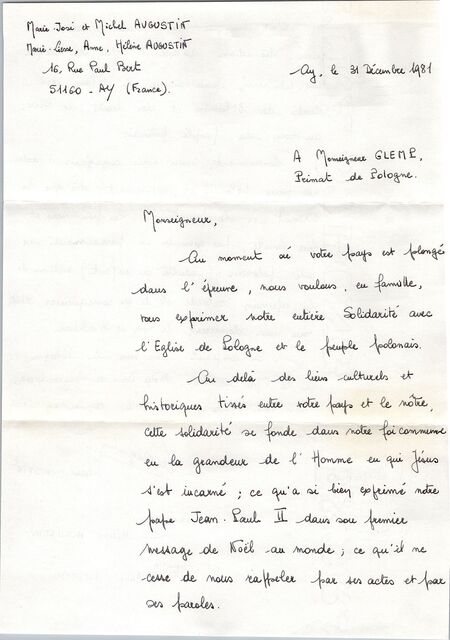 Marie-José et Michel AUGUSTIN
Marie-Liesse, Anne, Hélène AUGUSTIN
16, Rue Paul Bert
51160 - AY (France).
Ay, le 31 Décembre 1981
A Monseigneur GLEMP,
Primat de Pologne.
Monseigneur,
Au moment où votre pays est plongé
dans l'épreuve, nous voulons, en famille,
vous exprimer notre entière Solidarité avec
l'Eglise de Pologne et le peuple polonais.
Au delà des liens culturels et
historiques tissés entre votre pays et le nôtre,
cette solidarité se fonde dans notre foi commune
en la grandeur de l'Homme en qui Jésus
s'est incarné ; ce qu'a si bien exprimé notre
pape Jean-Paul II dans son premier
message de Noël au monde ; ce qu'il ne
cesse de nous rappeler par ses actes et par
ses paroles.